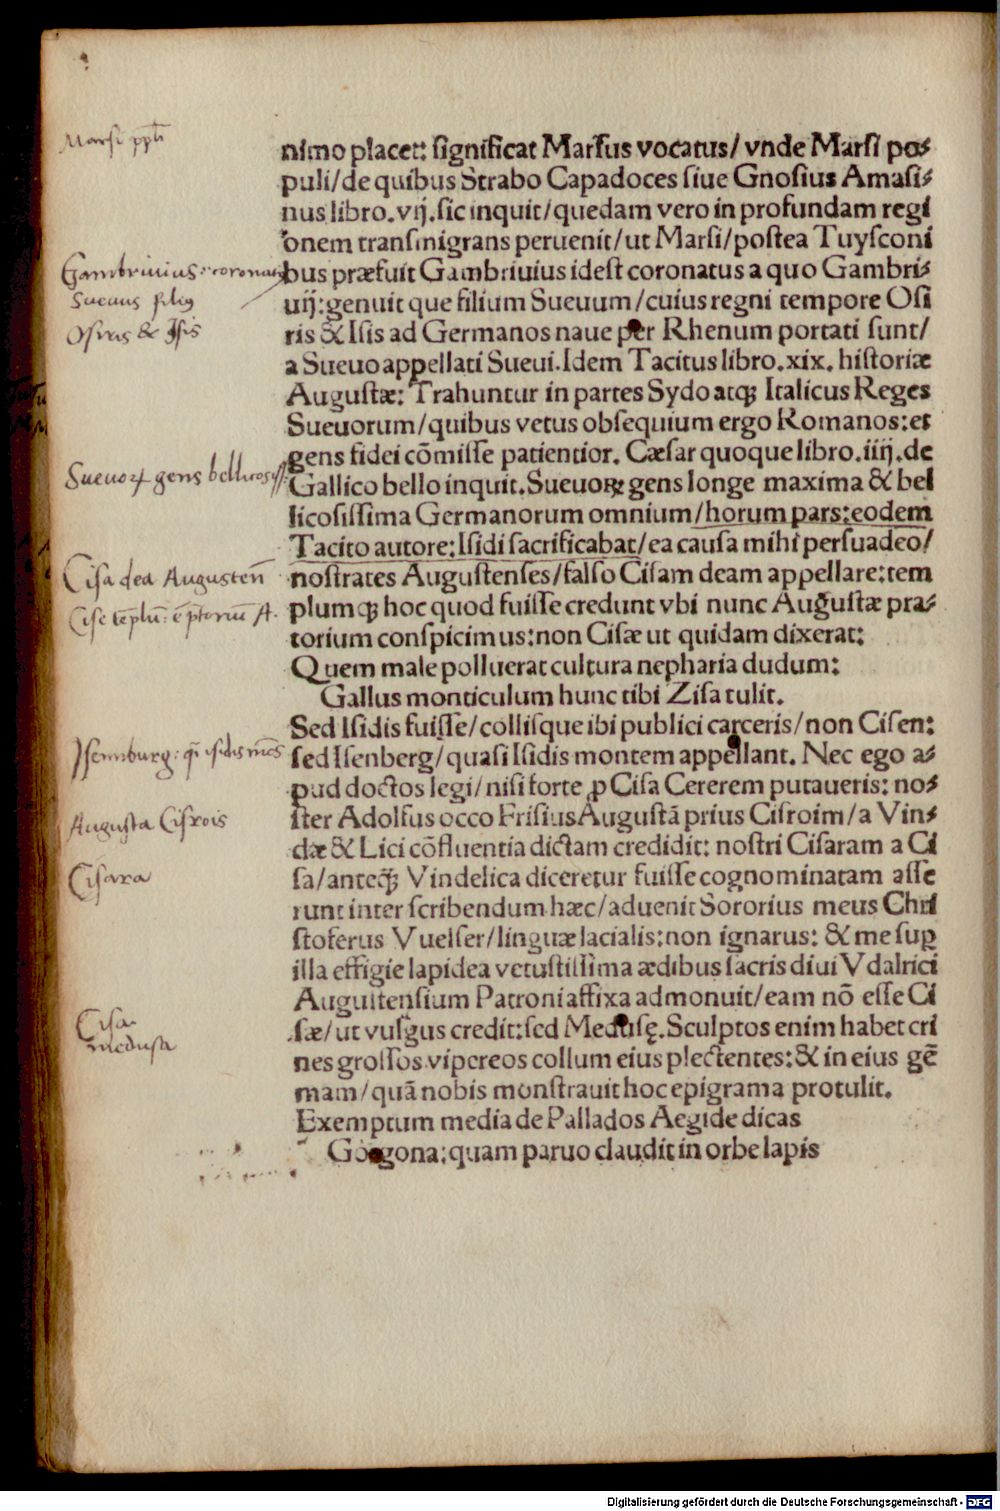 Marsi ppłi
nimo placet: significat Marsus vocatus/ vnde Marsi po⸗
puli/ de quibus Strabo Capadoces siue Gnosius Amasi⸗
nus libro. vij. sic inquit/ quedam vero in profundam regi
onem transmigrans peruenit/ ut Marsi/ postea Tuysconi
Gambriuius: coronatus
bus præfuit Gambriuius idest coronatus a quo Gambri⸗
Sueuus filius
uij: genuit que filium Sueuum/ cuius regni tempore Osi
Osiris & Isis
ris & Isis ad Germanos naue per Rhenum portati sunt/
a Sueuo appellati Sueui. Idem Tacitus libro. xix. historiæ
Augustæ: Trahuntur in partes Sydo atqꝫ Italicus Reges
Sueuorum/ quibus vetus obsequium ergo Romanos: et
gens fidei cõmisse patientior. Cæsar quoque libro. iiij. de
Sueuoꝝ gens bellicosiss:
Gallico bello inquit. Sueuoꝝ gens longe maxima & bel
licosissima Germanorum omnium/ horum pars: eodem
Tacito autore: Isidi sacrificabat/ ea causa mihi persuadeo/
Cisa dea Augusteñ
nostrates Augustenses/ falso Cisam deam appellare: tem
Cise teplũ: ẽ ptoriũ A.
plumqꝫ hoc quod fuisse credunt vbi nunc Augustæ præ⸗
torium conspicimus: non Cisæ ut quidam dixerat:
Quem male polluerat cultura nepharia dudum:
Gallus monticulum hunc tibi Zisa tulit.
Sed Isidis fuisse/ collisque ibi publici carceris/ non Cisen:
Isennburg: q̃ isidis mõs
sed Isenberg/ quasi Isidis montem appellant. Nec ego a⸗
pud doctos legi/ nisi forte ꝓ Cisa Cererem putaueris: no⸗
Augusta Cisrois
ster Adolfus occo Frisius Augustã prius Cisroim/ a Vin⸗
dæ & Lici cõfluentia dictam credidit: nostri Cisaram a Ci
Cisara
sa/ anteqꝫ̃ Vindelica diceretur fuisse cognominatam asse
runt inter scribendum hæc/ aduenit Sororius meus Chri
stoferus Vuelser/ linguæ lacialis: non ignarus: & me suꝑ
illa effigie lapidea vetustissima ædibus sacris diui Vdalrici
Augustensium Patroni affixa admonuit/ eam nõ esse Ci
Cisa
Medusa
sæ/ ut vulgus credit: sed Medusę. Sculptos enim habet cri
nes grossos vipereos collum eius plectentes: & in eius gẽ
mam/ quã nobis monstrauit hoc epigrama protulit.
Exemptum media de Pallados Aegide dicas
Gorgona: quam paruo claudit in orbe lapis
Digitalisierung gefördert durch die Deutsche Forschungsgemeinschaft - DFG